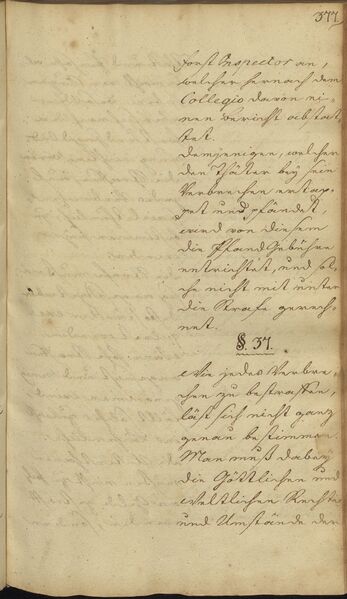 377.
Forst Inspector an,
welcher hernach dem
Collegio davon ei-
nen bericht abstat-
tet.
Demjenigen, welcher
den Thäter bey sein
Verbrechen ertap-
pet und pfändet,
wird von diesem
die PfandGebühre
entrichtet, und sol-
che nicht mit unter
die Strafe gerech-
net.
§. 37.
Wie jedes Verbre-
chen zu bestraffen,
läst sich nicht ganz
genau bestimmen.
Man muß dabey
die Göttlichen und
Weltlichen Rechte
und Umstände der